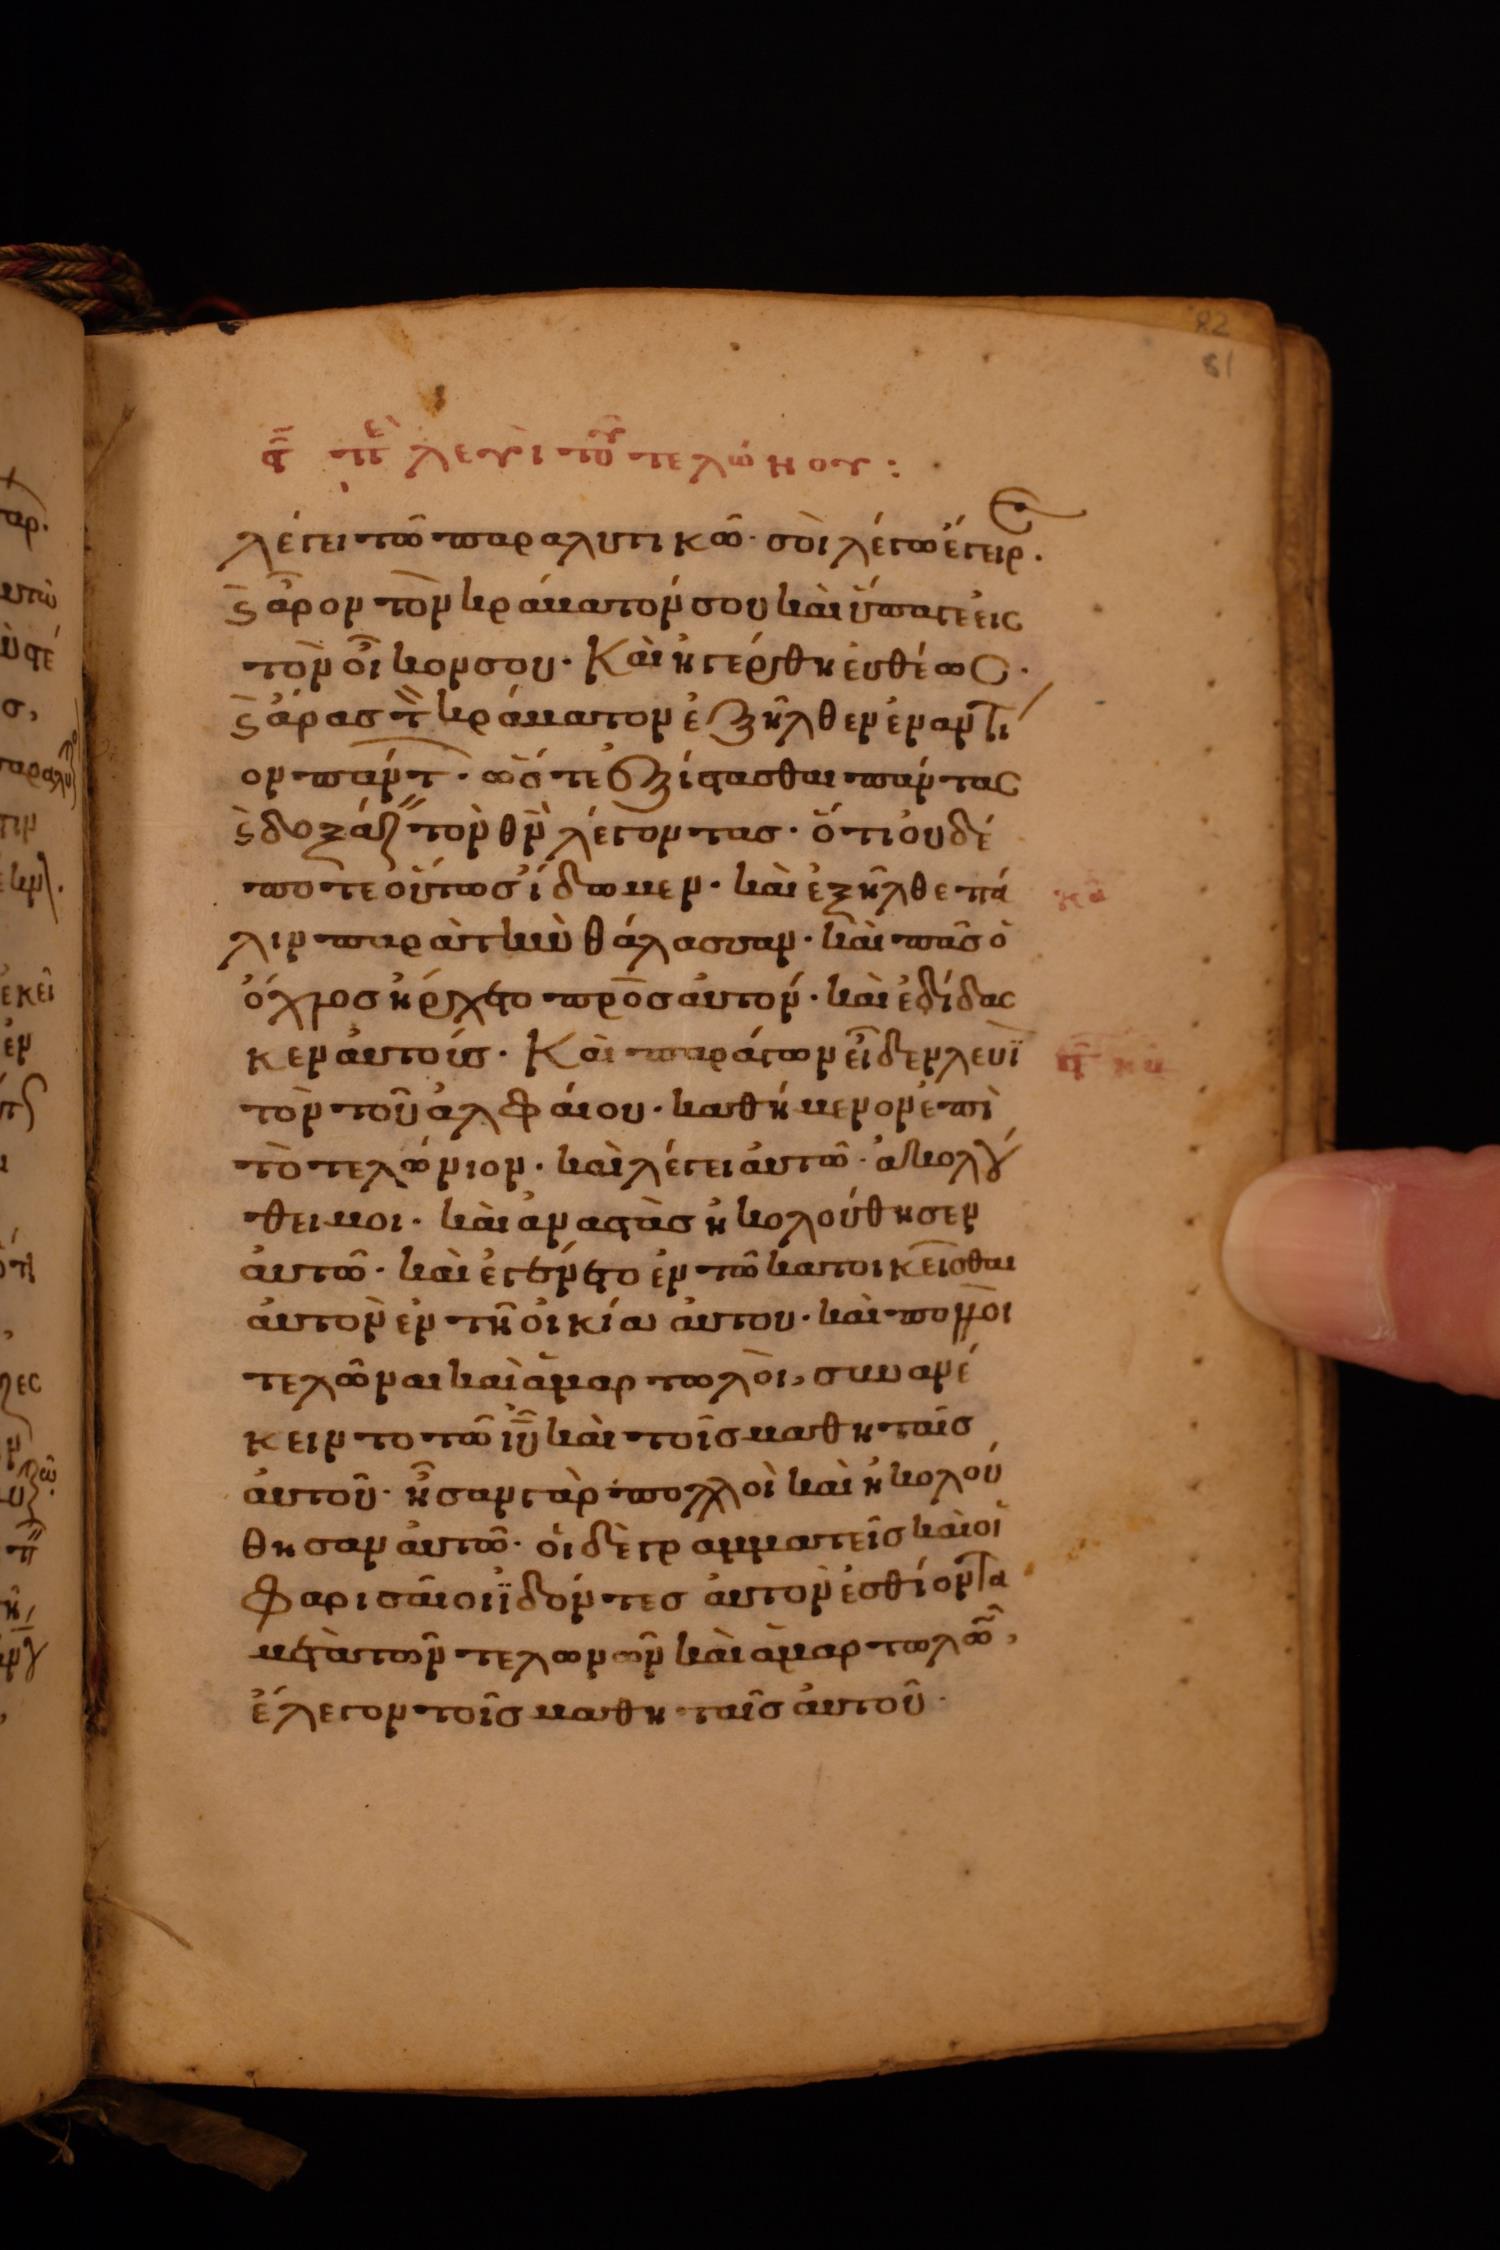 82
81
ϛ̄ πε λευὶ τοῦ τελώνου :
λέγει τῶ παραλυτικῶ· σοὶ λέγω ἔγειρε·
ϛ ἆρον τὸν κράβατόν σου καὶ ὕπαγε εἰς
τὸν οἶκον σου· Καὶ ἠγέρθη εὐθέως·
ϛ ἄρας τ̀ κράβατον ἐξῆλθεν ἐναντί
ον πάντ· ὥστε ἐξίστασθαι πάντας
ϛ δοξάζ τὸν θν̄ λέγοντας· ὅτι οὐδέ
ποτε οὕτως ἴδωμεν· καὶ ἐξῆλθε πά
λιν παρὰ τὴν θάλασσαν· καὶ πᾶς ὁ
ὄχλος ἤρχετο πρὸς αὐτόν· καὶ ἐδίδας
κεν αὐτούς· Καὶ παράγων εἶδεν λευῒ
τὸν τοῦ ἀλφαίου· καθήμενον ἐπὶ
τὸ τελώνιον· καὶ λέγει αὐτῶ· ἀκολού
θει μοι· καὶ ἀναστὰς ἠκολούθησεν
αὐτῶ· καὶ ἐγένετο ἐν τῶ κατοικεῖσθαι
αὐτὸν ἐν τῆ οἰκία αὐτου· καὶ πολλοὶ
τελῶναι καὶ ἁμαρτωλοὶ, συνανέ
κειντο τῶ ἰῦ καὶ τοῖς μαθηταῖς
αὐτοῦ· ἦσαν γὰρ πολλοὶ καὶ ἠκολού
θησαν αὐτῶ· οἱ δὲ γραμματεῖς καὶ οἱ
Φαρισαῖοι ἰδόντες αὐτὸν ἐσθίοντα
μετὰ τῶν τελωνῶν καὶ ἁμαρτωλῶ,
ἔλεγον τοῖς μαθηταῖς αὐτοῦ·